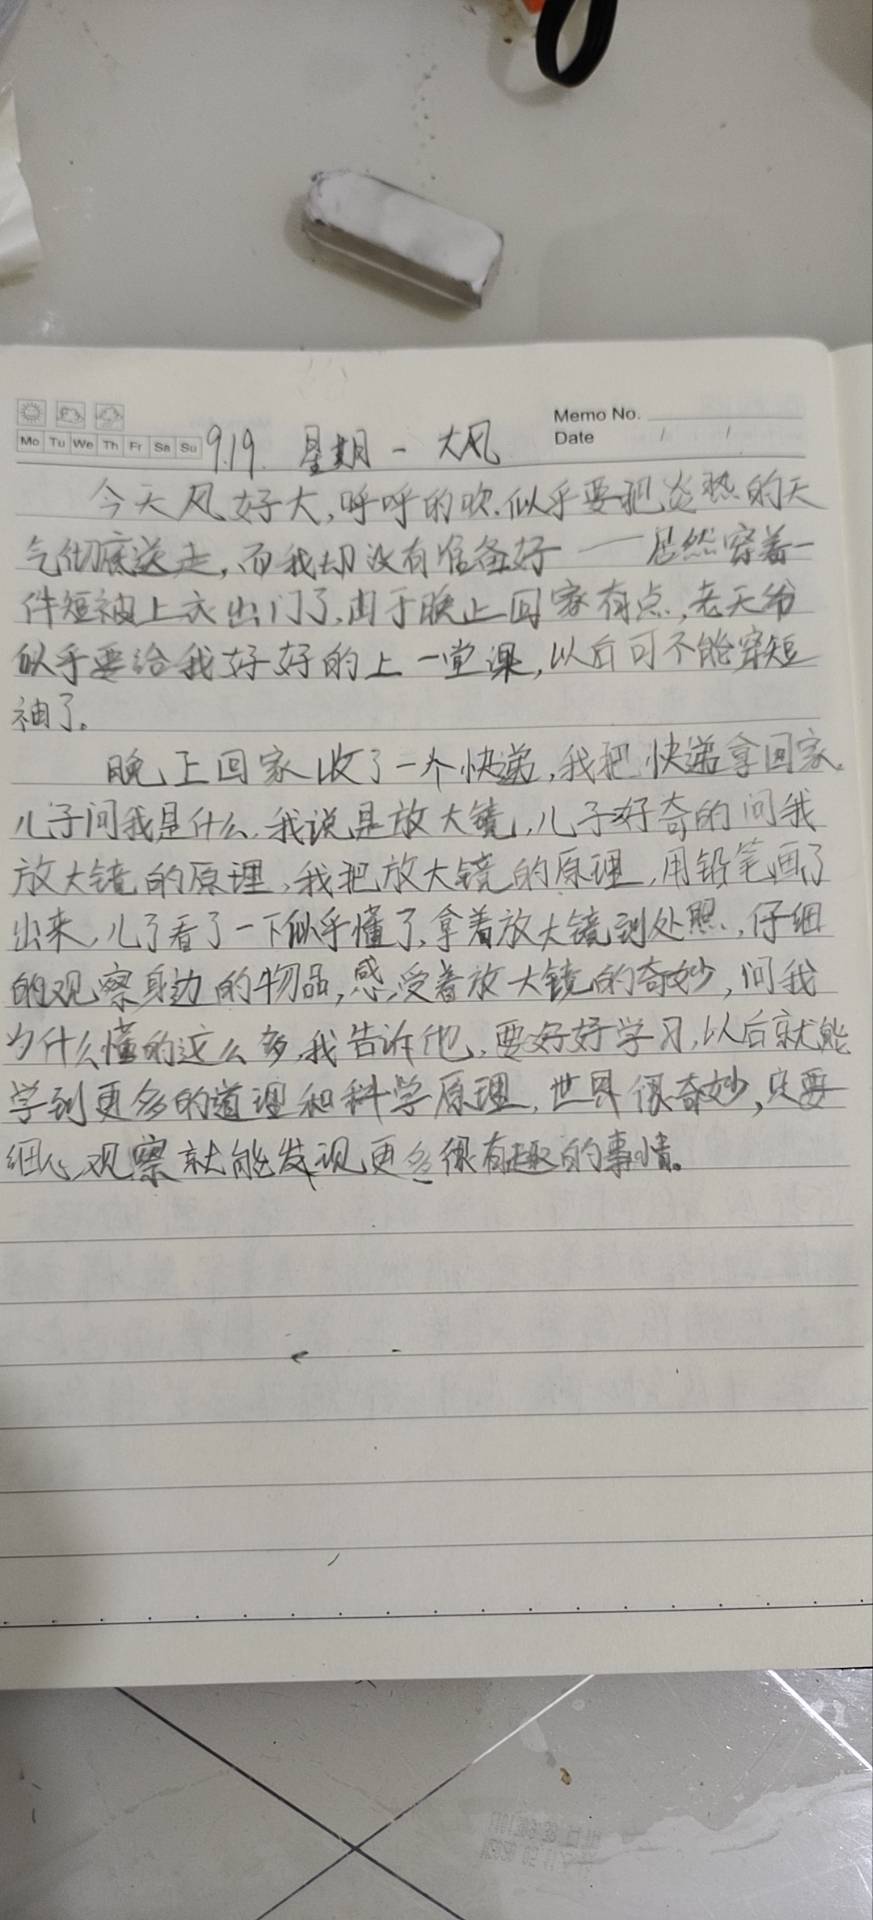 Memo No.
Mo Tu We Th Fr Sa Su 9.19. 星期一 大风 Date / /
今天风好大,呼呼的吹.似乎要把炎热的天
气彻底送走,而我却没有准备好——居然穿着一
件短袖上衣出门了,由于晚上回家有点,老天爷
似乎要给我好好的上一堂课,以后可不能穿短
袖了。
晚上回家收了一个快递,我把快递拿回家。
儿子问我是什么,我说是放大镜,儿子好奇的问我
放大镜的原理,我把放大镜的原理,用铅笔画了
出来,儿了看了一下似乎懂了,拿着放大镜到处照,仔细
的观察身边的物品,感受着放大镜的奇妙,问我
为什么懂的这么多,我告诉他,要好好学习,以后就能
学到更多的道理和科学原理,世界很奇妙,只要
细心观察就能发现更多很有趣的事情。